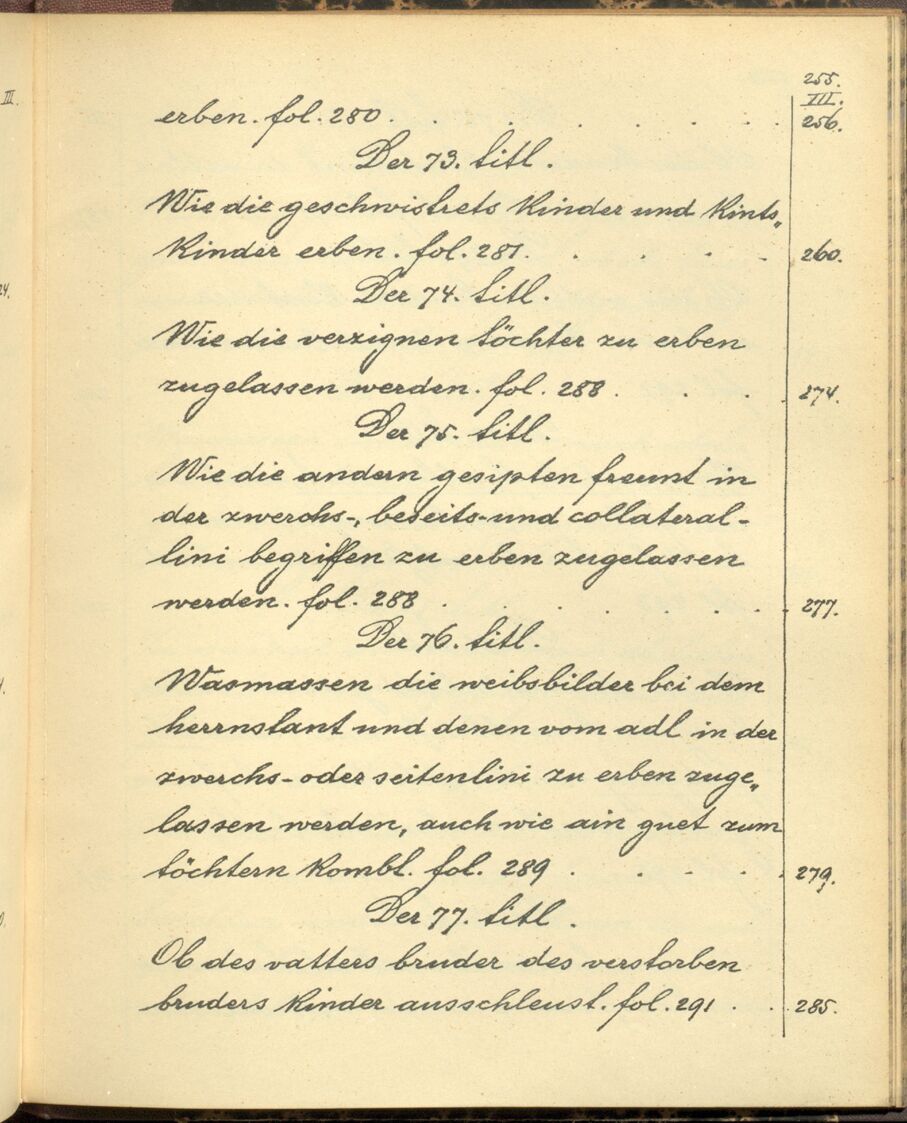 255.
III.
III.
erben. fol. 280 . . . . . . . . 256.
Der 73. titl.
Wie die geschwistrets Kinder und Kints„
Kinder erben. fol. 281. . . . . 260.
24.
Der 74. titl.
Wie die verzignen töchter zu erben
zugelassen werden. fol. 288 . . . . 274.
Der 75. titl.
Wie die andern gesipten freunt in
der zwerchs-, beseits- und collateral-
lini begriffen zu erben zugelassen
werden. fol. 288 . . . . . . . 277.
Der 76. titl.
Wasmassen die weibsbilder bei dem
herrnstant und denen vom adl in der
zwerchs- oder seitenlini zu erben zuge„
lassen werden, auch wie ain guet zum
töchtern kombt. fol. 289 . . . . . 279.
Der 77. titl.
Ob des vatters bruder des verstorben
bruders Kinder ausschleust. fol. 291 . . . 285.